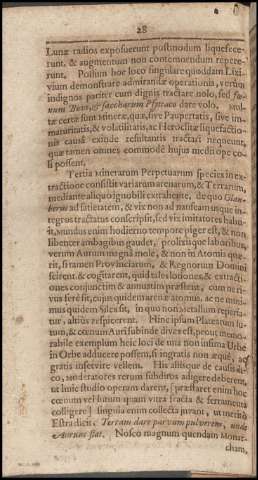 28
Lunæ radios exposuerunt postmodum liquefece-
runt, & augmentum non contemnendum repere-
runt, Possum hoc loco singulare quoddam Lixi-
vium demonstrare admirandæ operationis, verum
indignos pariter cum dignis tractare nolo, sed
num Bovi, & saccharum Psittaco dare volo,
tæ certæ sunt Mineræ, quæ, sive Paupertatis, sive im-
maturitatis, & volatilitatis, ac
nis causa exinde resultantis tractari nequeunt,
quæ tamen omnes commodè hujus medii ope co-
li possent.
Tertia Minerarum Perpetuarum species in ex-
tractione consistit variarum arenarum, & Terrarum,
mediante aliquo ignobili extrahente, de quo Glau-
berus ad satietatem, & vix non ad nauseam usque in-
tegros tractatus conscripsit, sed vix imitatores habu-
it, Mundus enim hodierno tempore piger est, & non
libenter ambagibus gaudet, prolixisque laboribus,
verum Aurum magnâ mole, & non in Atomis quæ-
rit, si tamen Provinciarum, & Regnorum Domini
scirent, & cogitarent, quid tales lotiones, & extracti-
ones conjunctim & annuatim præstent, cum ne ri-
vus ferè sit, cujus quidem arenæ atomus, ac ne mini-
mus quidem Silex sit, in quo non metallum reperia-
tur, altiùs respicerent. Hinc ipsum Plateatum lu-
tum, & cœnum Auri subinde dives est, prout memo-
rabile exemplum hîc loci de una non infima Urbe
in Orbe adducere possem, si ingratis non æquè, ac
gratis inservire vellem. His aliisque de causis di-
co, Moderatores rerum subditos adigere deberent,
ut hujus studio operam darent, [præstaret enim hoc
cœnum vel lutum quàm vitra fracta & ferramenta
colligere] singula enim collecta juvant, ut meritò
Estradicit, Terram dare parvum pulverem, unde
Aurum fiat. Nosco magnum quendam Monar-
cham,